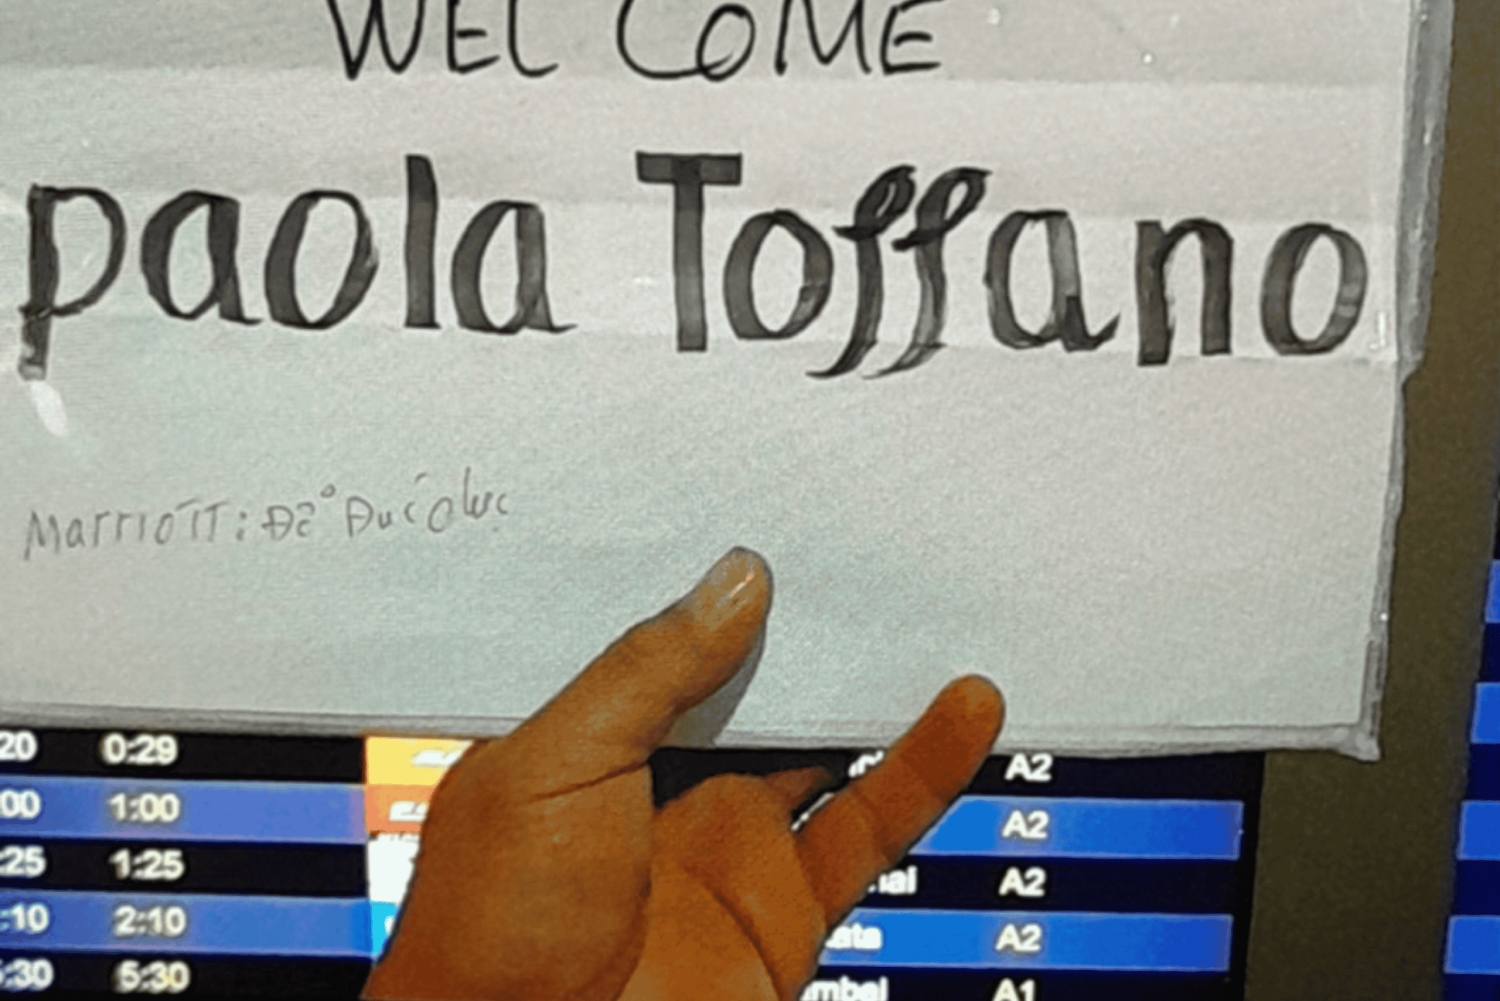 WELCOME
paola Toffano
Marriott: Để Được ộ lực
20 0:29 A2
00 1:00 A2
:25 1:25 nai A2
:10 2:10 ata A2
5:30 5:30 mbai A1